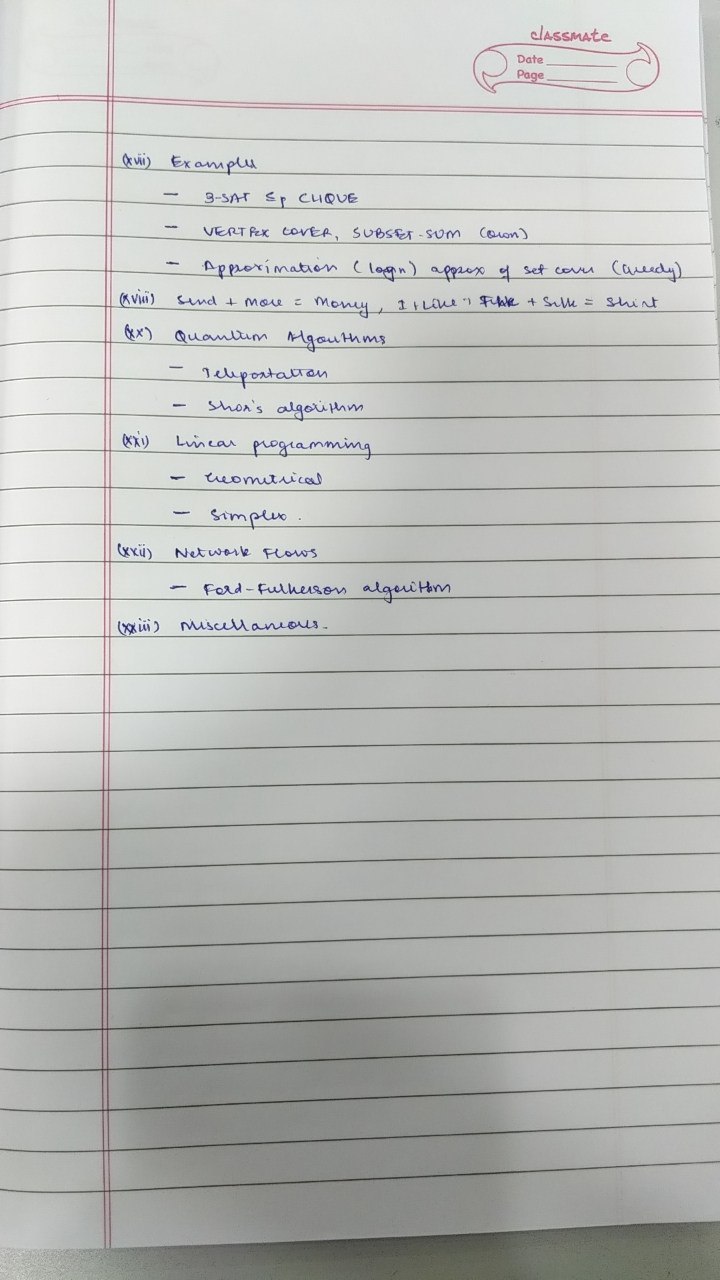 classmate
Date
Page
(xvii) Examples
— 3-SAT ≤p CLIQUE
— VERTEX COVER, SUBSET-SUM (Own)
— Approximation (log n) approx of set cover (Greedy)
(xviii) Send + More = Money, I + Like + + Silk = Shirt
(xx) Quantum Algorithms
— Teleportation
— Shor's algorithm
(xxi) Linear programming
— Geometrical
— Simplex.
(xxii) Network Flows
— Ford-Fulkerson algorithm
(xxiii) Miscellaneous.